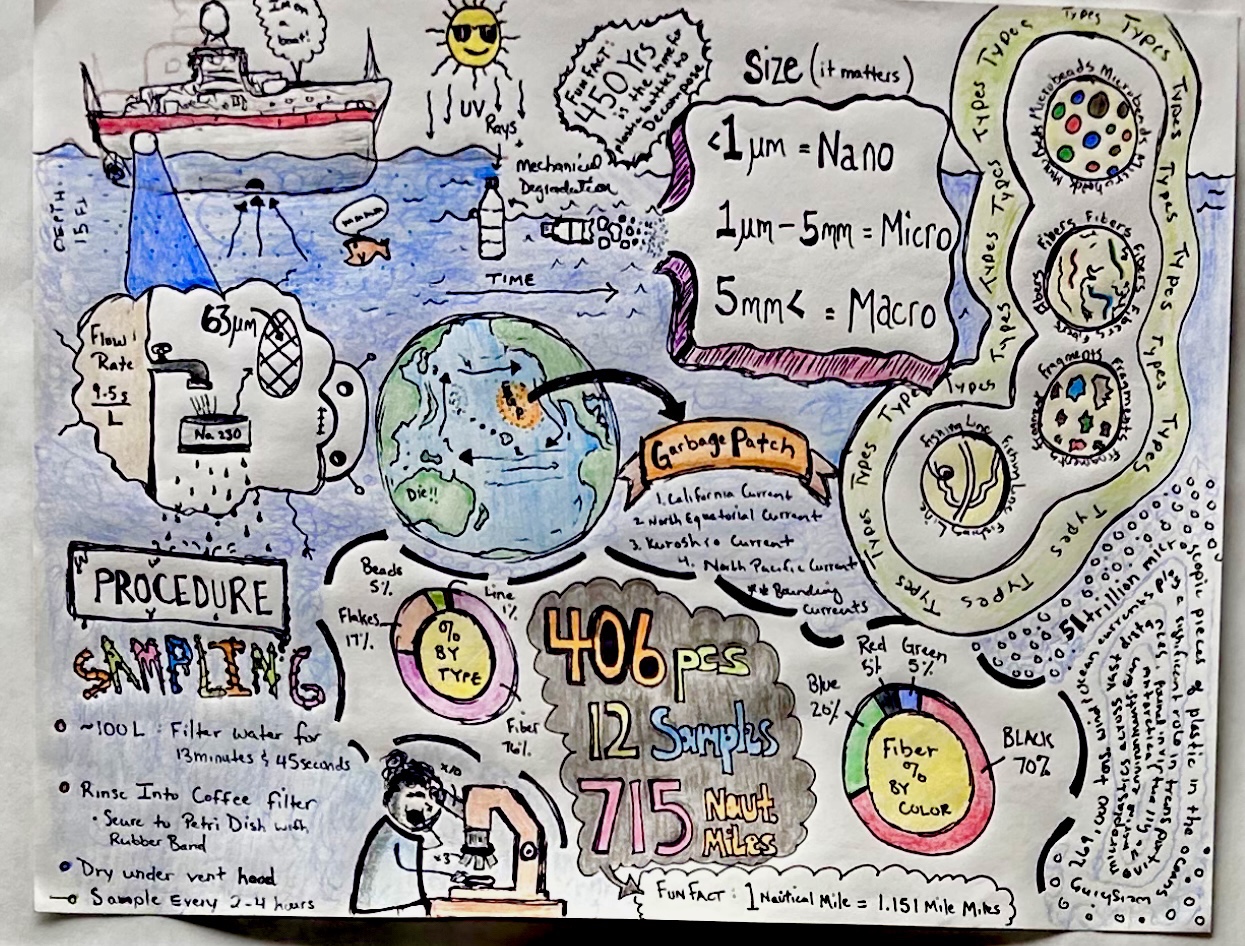 Im on
boat!
UV
Rays
+
Mechanical
Degradation
FUN FACT:
450 Yrs
is the time for
plastic bottles to
Decompose
Size (it matters)
<1μm = Nano
1μm-5mm = Micro
5mm< = Macro
Types Types Types Types Types Types Types Types Types Types Types Types Types Types Types Types Types Types
Microbeads Microbeads Microbeads Microbeads
Fibers Fibers Fibers Fibers Fibers Fibers
Fragments Fragments Fragments Fragment
Fishing Line Fishing Line Fishing Line
DEPTH:
15 Ft
TIME
Flow
Rate
9.5s
L
63μm
No. 230
Die!!
Garbage Patch
1. California Current
2. North Equatorial Current
3. Kuroshio Current
4. North Pacific Current
** Bounding
Currents
PROCEDURE
SAMPLING
~100L : Filter water for
13minutes & 45seconds
Rinse Into Coffee filter
• Seure to Petri Dish with
Rubber Band
Dry under vent hood
Sample Every 2-4 hours
Beads
5%
Line
1%
Flakes
17%
Fiber
% BY TYPE
x10
x3
406 pcs
12 Samples
715 Naut.
Miles
FUN FACT: 1 Nautical Mile = 1.151 Mile Miles
Red
5%
Green
5%
Blue
20%
BLACK
70%
Fiber
%
BY
COLOR
51 trillion microscopic pieces of plastic in the oceans
weighing 269,000 tons